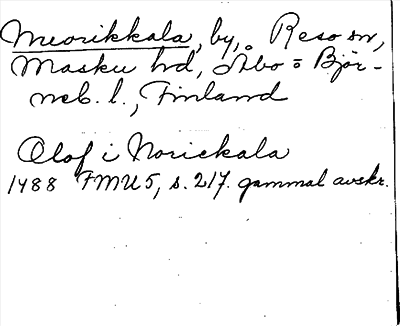 Nuorikkala, by, Reso sn,
Masku hd, Åbo o Björ-
neb. l., Finland
Olof i Norickala
1488 FMU 5, s. 217. gammal avskr.